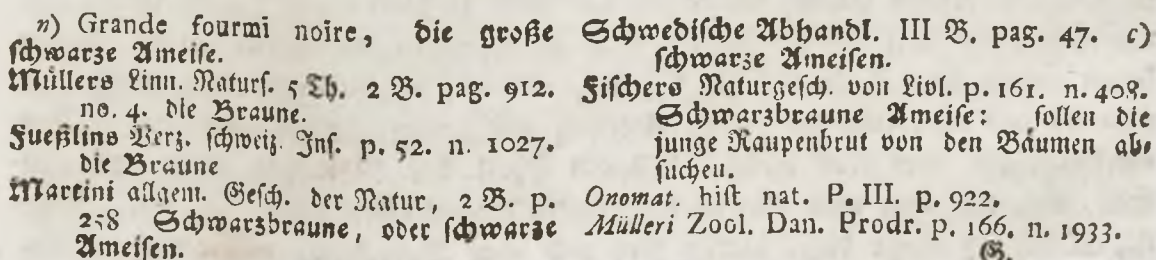 n) Grande fourmi noire, die große
ſchwarze Ameiſe.
Müllers Linn. Naturſ. 5 Th. 2 B. pag. 912.
no. 4. die Braune.
Fueßlins Verz. ſchweiz. Inſ. p. 52. n. 1027.
die Braune
Martini allgem. Geſch. der Natur, 2 B. p.
258 Schwarzbraune, oder ſchwarze
Ameiſen.
Schwediſche Abhandl. III B. pag. 47. c)
ſchwarze Ameiſen.
Fiſchers Naturgeſch. von Livl. p. 161. n. 408.
Schwarzbraune Ameiſe: ſollen die
junge Raupenbrut von den Bäumen ab-
ſuchen.
Onomat. hiſt nat. P. III. p. 922.
Mülleri Zool. Dan. Prodr. p. 166. n. 1933.
G.